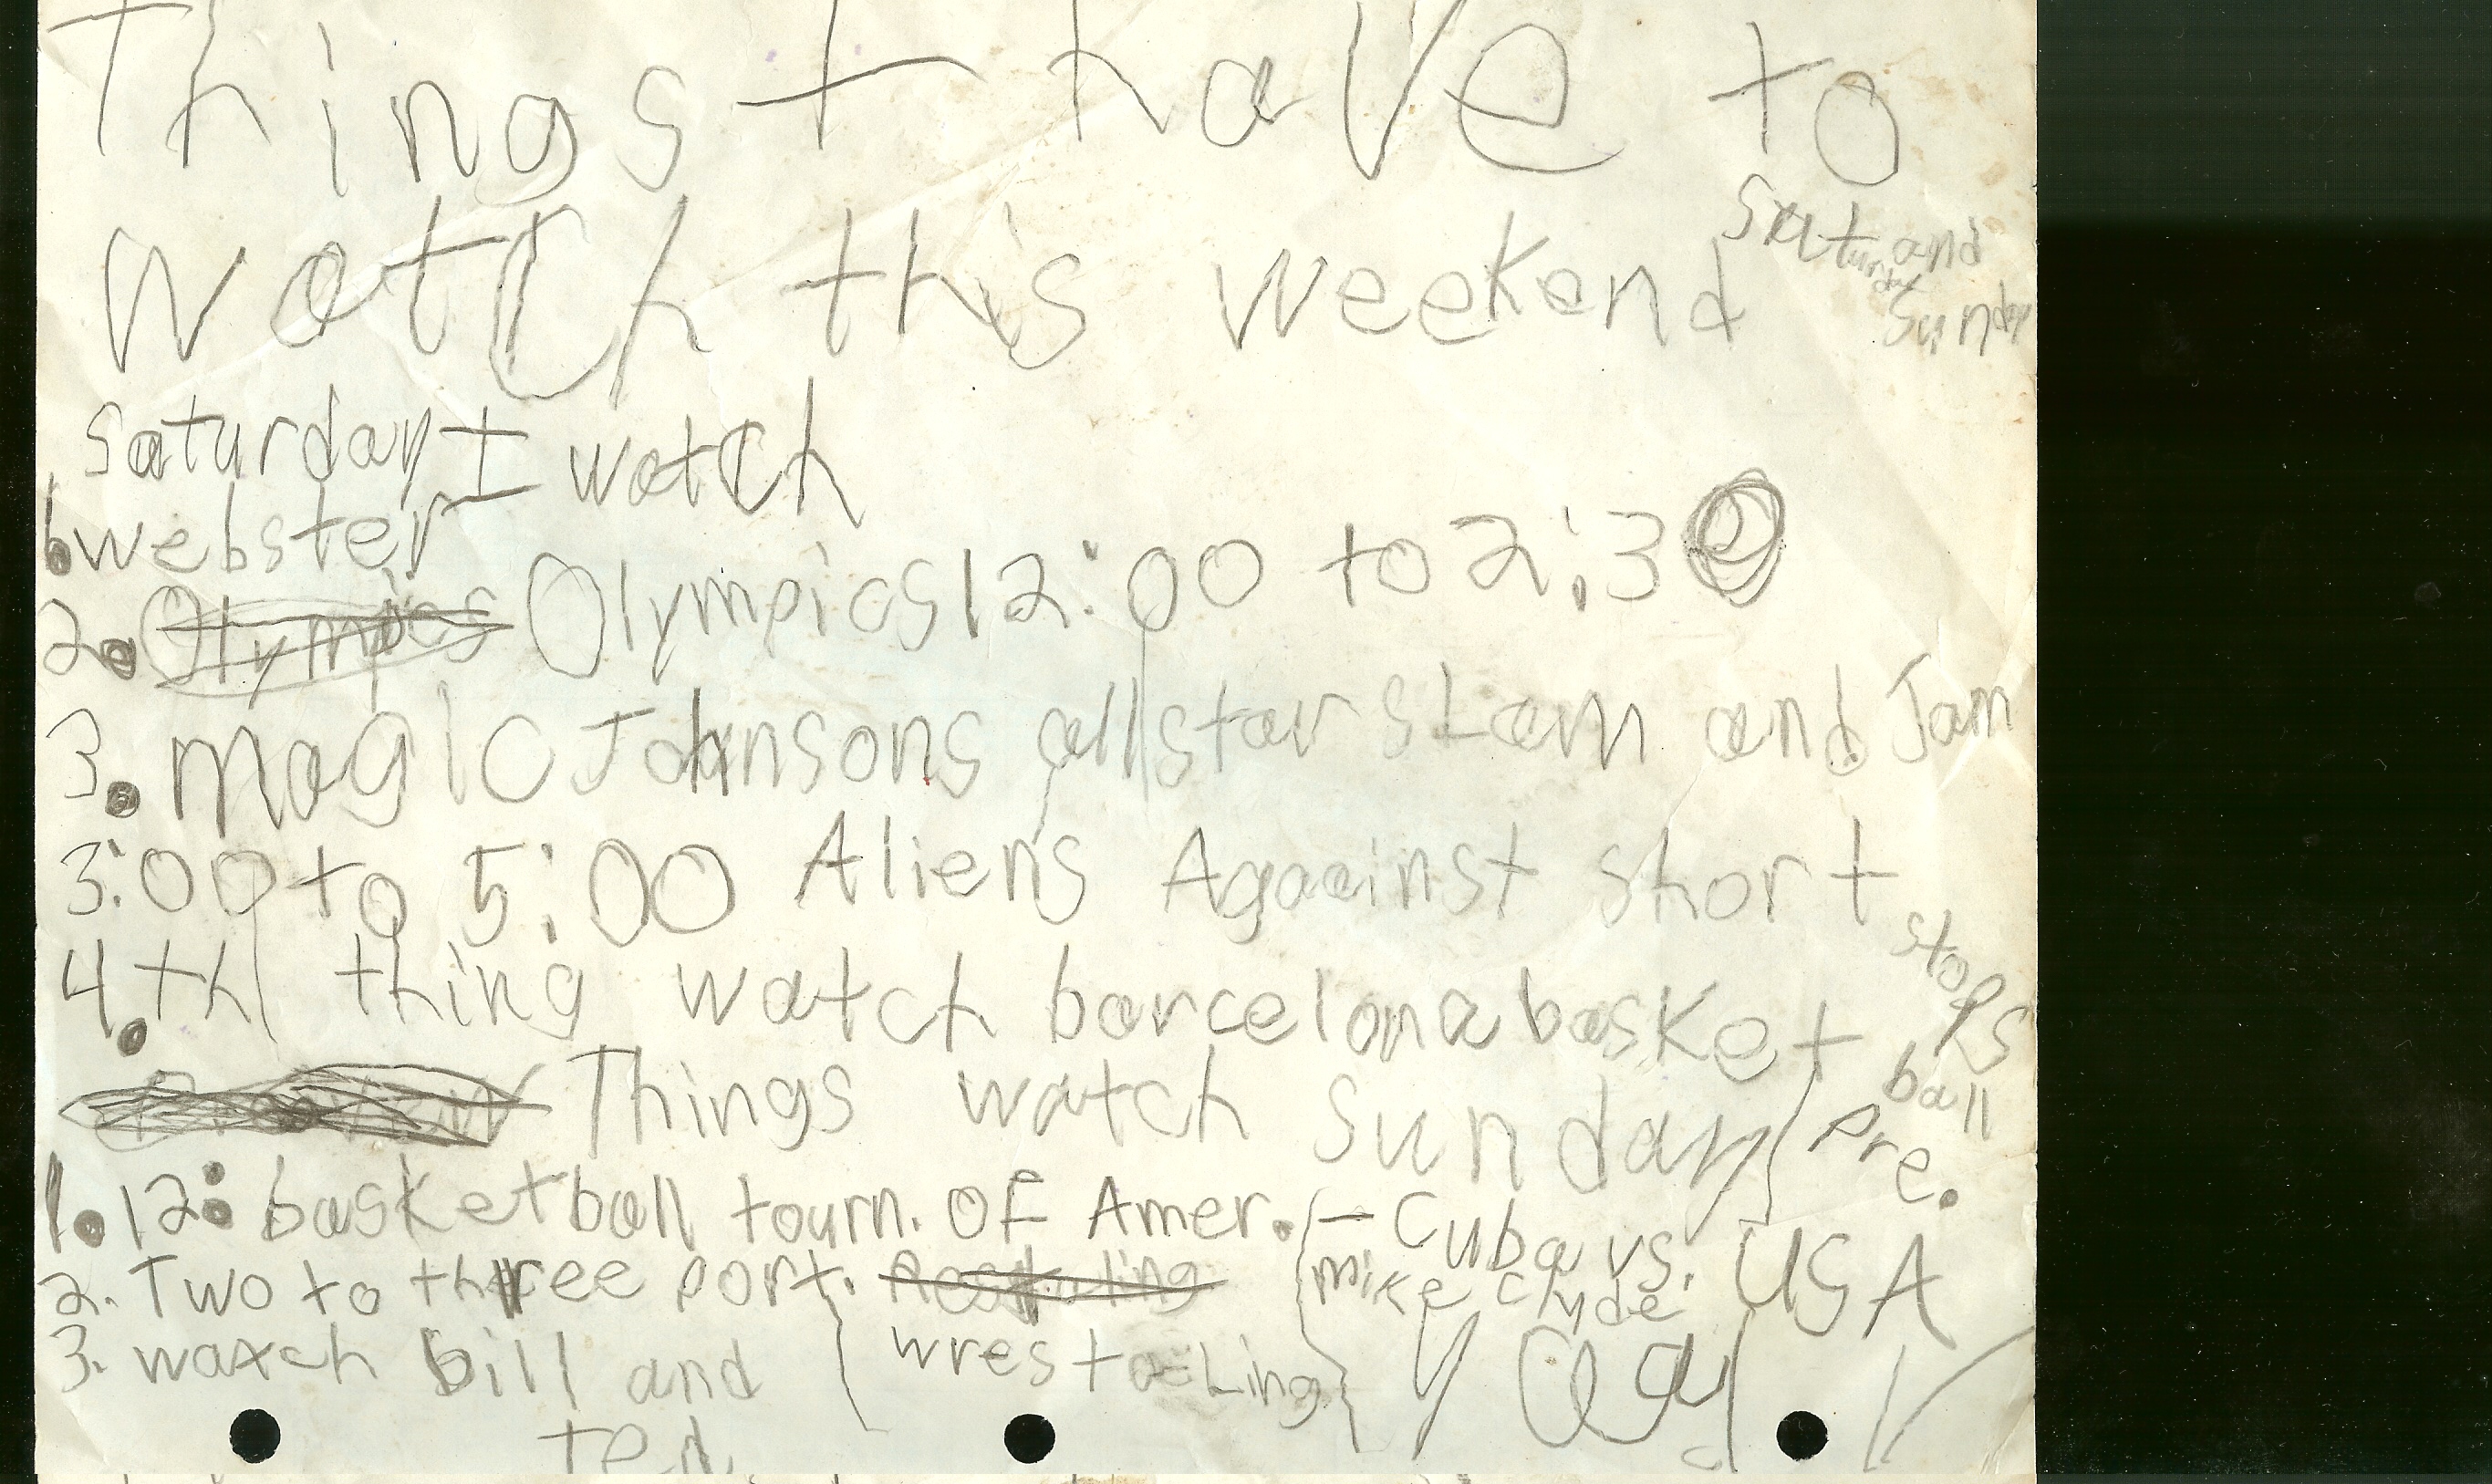 Things I have to
watch this weekend Saturday and Sunday
Saturday I watch
1. webster
2. Olympics Olympics 12:00 to 2:30
3. magic Johnsons allstar sLam and Jam
3:00 to 5:00 Aliens Agaainst short stops
4.th thing watch barcelona basket ball pre.
Things watch Sunday
1. 12: basketball tourn. OF Amer. - Cuba vs. USA
2. Two to three port. wrestaLing
mike clyde
3. watch bill and
ted